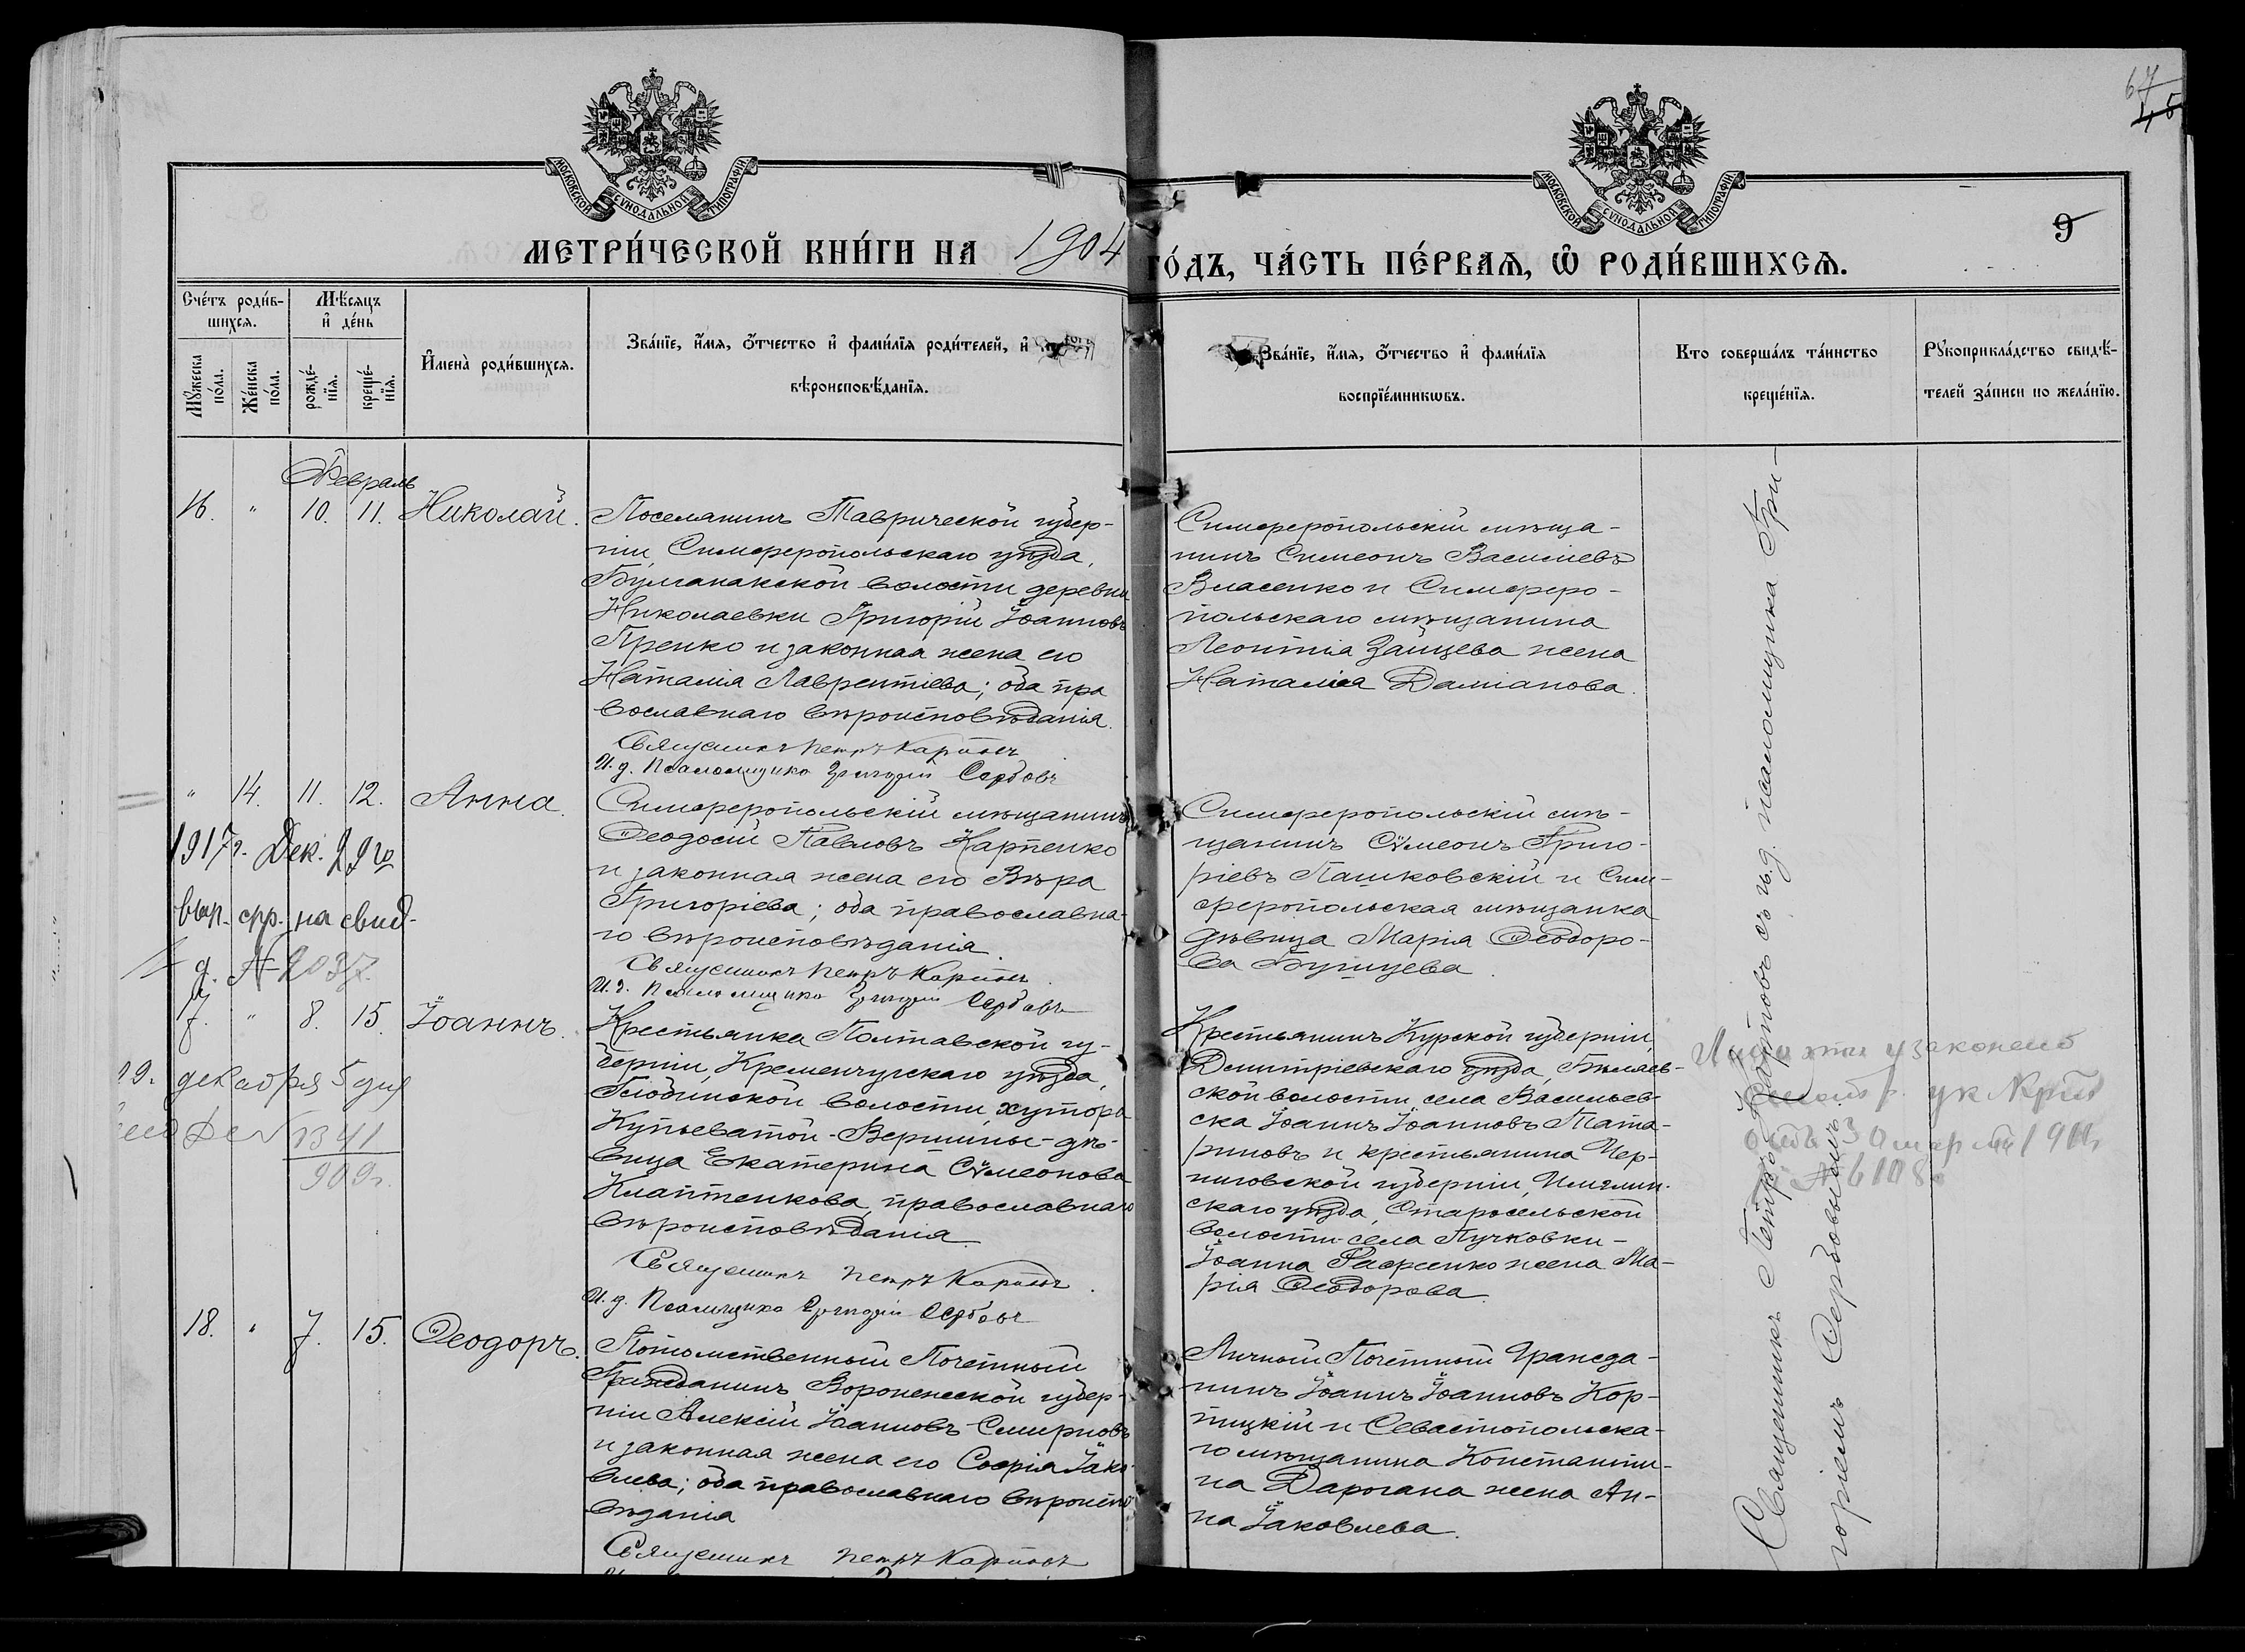 67
45
МОСКОВСКОЙ СѴНОДАЛЬНОЙ ТИПОГРАФІИ
МОСКОВСКОЙ СѴНОДАЛЬНОЙ ТИПОГРАФІИ
9
МЕТРИ́ЧЕСКОЙ КНИ́ГИ НА 1904 ГО́ДЪ, ЧА́СТЬ ПЕ́РВАѦ, Ѡ҆ РОДИ́ВШИХСѦ.
Сче́тъ роди́в-
шихсѧ.
Мѣ́сѧцъ
и҆ де́нь
Мꙋ́жеска по́ла.
Же́нска по́ла.
рожде́-
нїѧ.
креще́-
нїѧ.
И҆мена̀ роди́вшихсѧ.
Зва́нїе, и҆́мѧ, ѻ҆́тчество и҆ фами́лїѧ роди́телей, и҆
вѣроисповѣ́данїѧ.
Зва́нїе, и҆́мѧ, ѻ҆́тчество и҆ фами́лїѧ
воспрїе́мникѡвъ.
Кто соверша́лъ та́инство
креще́нїѧ.
Рꙋкоприкла́дство свидѣ́-
телей за́писи по жела́нїю.
Февраль
16. " 10. 11. Николай.
Поселянинъ Таврической губер-
ніи, Симферопольскаго уѣзда,
Булганакской волости деревни
Николаевки Григорій Іоанновъ
Пренко и законная жена его
Наталія Лаврентіева; оба пра
вославнаго вѣроисповѣданія.
Священникъ Петръ Карповъ
И. д. Псаломщика Григорій Сербовъ
Симферопольскій мѣща-
нинъ Симеонъ Василіевъ
Власенко и Симферо-
польскаго мѣщанина
Леонтія Зайцева жена
Наталія Даміанова.
" 14. 11. 12. Анна.
1917 г. Дек. 29 го
вып. спр. на свид.
д. № 2037.
Симферопольскій мѣщанинъ
Ѳеодосій Павловъ Карпенко
и законная жена его Вѣра
Григоріева; оба православна-
го вѣроисповѣданія.
Священникъ Петръ Карповъ
И. д. Псаломщика Григорій Сербовъ
Симферопольскій мѣ-
щанинъ Сѵмеонъ Григо-
ріевъ Пашковскій и Сим-
феропольская мѣщанка
дѣвица Марія Ѳеодоро-
ва Бугущева.
7. " 8. 15. Іоаннъ.
09. декабря 5 дня
1341
909 г.
Крестьянка Полтавской гу-
берніи, Кременчугскаго уѣзда,
Глобинской волости, хутора
Купьеватой-Вершины-дѣ-
вица Екатерина Сѵмеонова
Клаптенкова, православнаго
вѣроисповѣданія.
Священникъ Петръ Карповъ.
И. д. Псаломщика Григорій Сербовъ
Крестьянинъ Курской губерніи,
Дмитріевскаго уѣзда, Бѣляев-
ской волости села Васильев-
ска Іоаннъ Іоанновъ Тата-
риновъ и крестьянина Чер-
ниговской губерніи,
скаго уѣзда, Старосельской
волости села Пучковки-
Іоанна жена Ма-
рія Ѳеодорова.
узаконено
30 марта 19
№ 6108
18. " 7. 15. Ѳеодоръ.
Потомственный Почетный
Гражданинъ Воронежской губер-
ніи Алексій Іоанновъ Смирновъ
и законная жена его Софія Іако-
влева; оба православнаго вѣроиспо
вѣданія
Священникъ Петръ Карповъ
Личный Почетный Гражда-
нинъ Іоаннъ Іоанновъ Кор-
пицкій и Севастопольска-
го мѣщанина Константи-
на Дарогана жена Ан-
на Іаковлева.
Священникъ Петръ Карповъ съ и. д. псаломщика Гри-
горіемъ Сербовымъ.